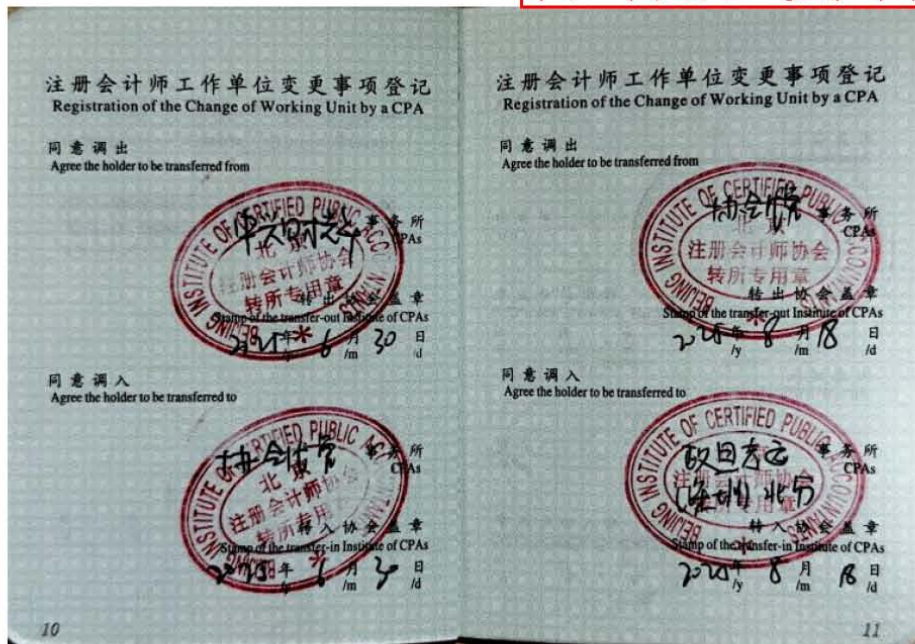 注册会计师工作单位变更事项登记
Registration of the Change of Working Unit by a CPA
同意调出
Agree the holder to be transferred from
BEIJING INSTITUTE OF CERTIFIED PUBLIC ACCOUNTANTS
北京
注册会计师协会
转所专用章
事务所
CPAs
转出协会盖章
Stamp of the transfer-out Institute of CPAs
年 6 月 30 日
/y /m /d
同意调入
Agree the holder to be transferred to
BEIJING INSTITUTE OF CERTIFIED PUBLIC ACCOUNTANTS
协会代管
事务所
CPAs
北京
注册会计师协会
转所专用
转入协会盖章
Stamp of the transfer-in Institute of CPAs
2025 年 6 月 30 日
/y /m /d
10
注册会计师工作单位变更事项登记
Registration of the Change of Working Unit by a CPA
同意调出
Agree the holder to be transferred from
BEIJING INSTITUTE OF CERTIFIED PUBLIC ACCOUNTANTS
协会代管
事务所
CPAs
北京
注册会计师协会
转所专用章
转出协会盖章
Stamp of the transfer-out Institute of CPAs
2025 年 8 月 18 日
/y /m /d
同意调入
Agree the holder to be transferred to
BEIJING INSTITUTE OF CERTIFIED PUBLIC ACCOUNTANTS
事务所
CPAs
(深圳) 北分
转入协会盖章
Stamp of the transfer-in Institute of CPAs
2025 年 8 月 18 日
/y /m /d
11